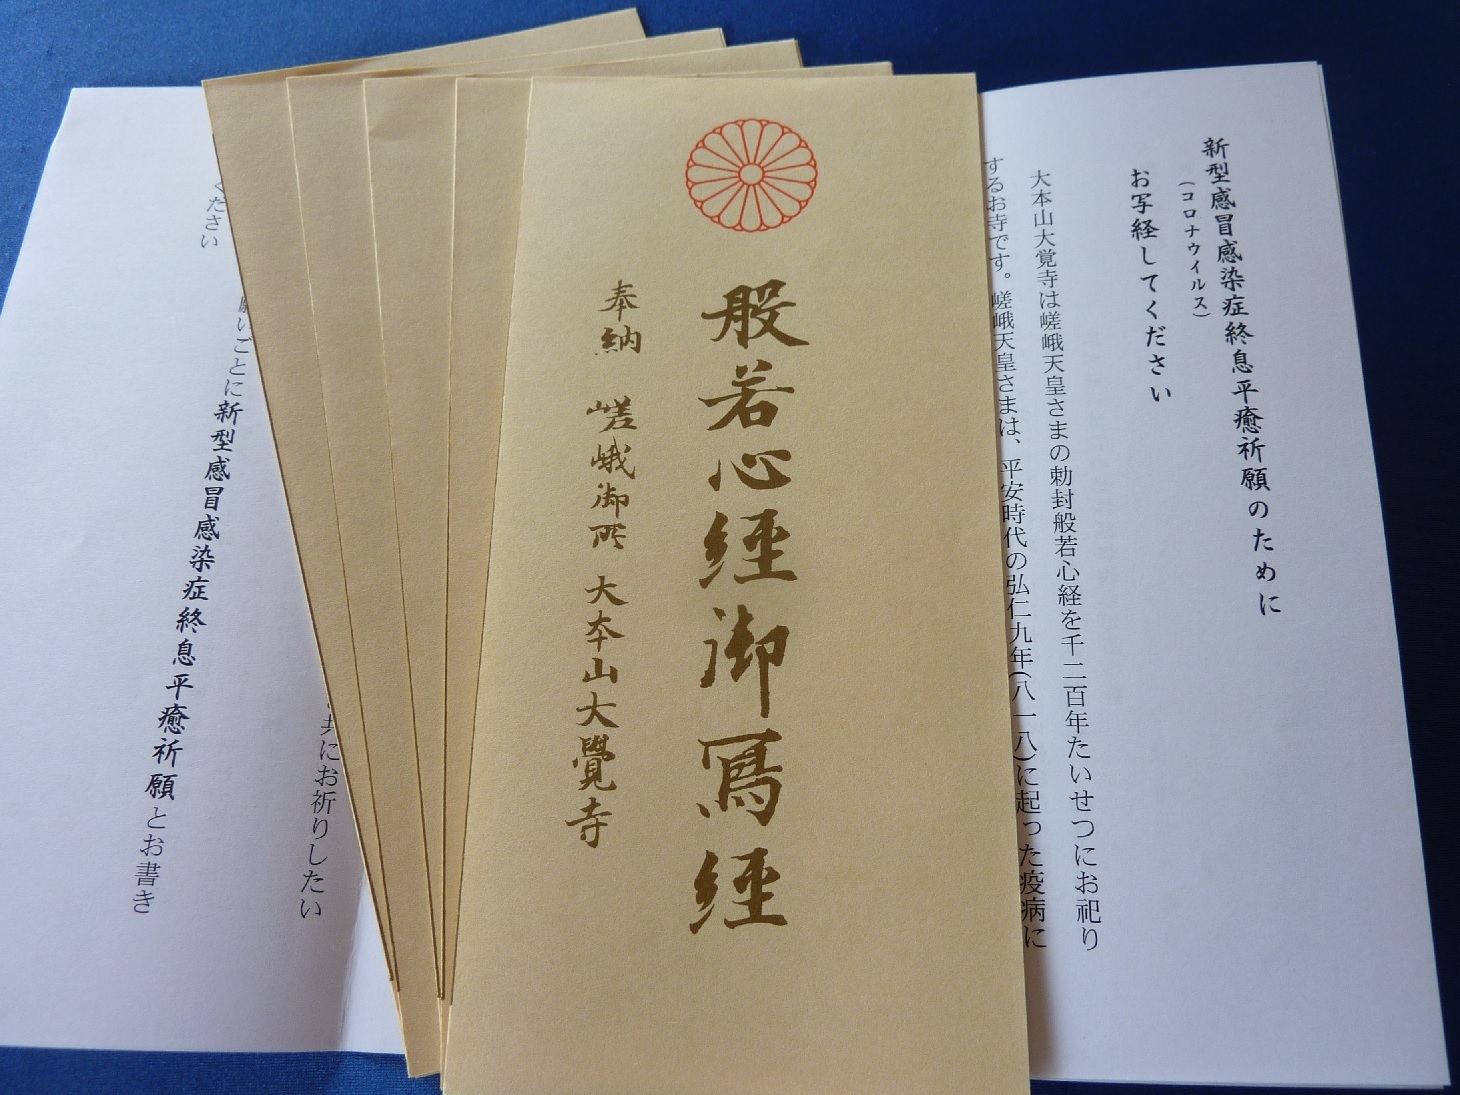 新型感冒感染症終息平癒祈願のために
（コロナウイルス）
お写経してください
大本山大覚寺は嵯峨天皇さまの勅封般若心経を千二百年たいせつにお祀り
するお寺です。嵯峨天皇さまは、平安時代の弘仁九年(八一八)に起った疫病に
般若心経御寫経
奉納 嵯峨御所 大本山大覺寺
共にお祈りしたい
願いごとに新型感冒感染症終息平癒祈願とお書き
ください